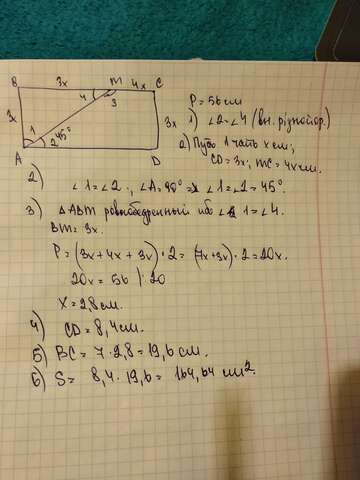 B 3x M 4x C
4 3
3x 3x
1
2 45°
A D
P = 56 см
1) ∠2 = ∠4 (вн. різностор.)
2) Пусть 1 часть x см,
CD = 3x; MC = 4x см.
2) ∠1 = ∠2, ∠A = 90° => ∠1 = ∠2 = 45°.
3) ΔABM равнобедренный ибо ∠1 = ∠4.
BM = 3x.
P = (3x + 4x + 3x) · 2 = (7x + 3x) · 2 = 20x.
20x = 56 | : 20
X = 2,8 см.
4) CD = 8,4 см.
5) BC = 7 · 2,8 = 19,6 см.
6) S = 8,4 · 19,6 = 164,64 см².